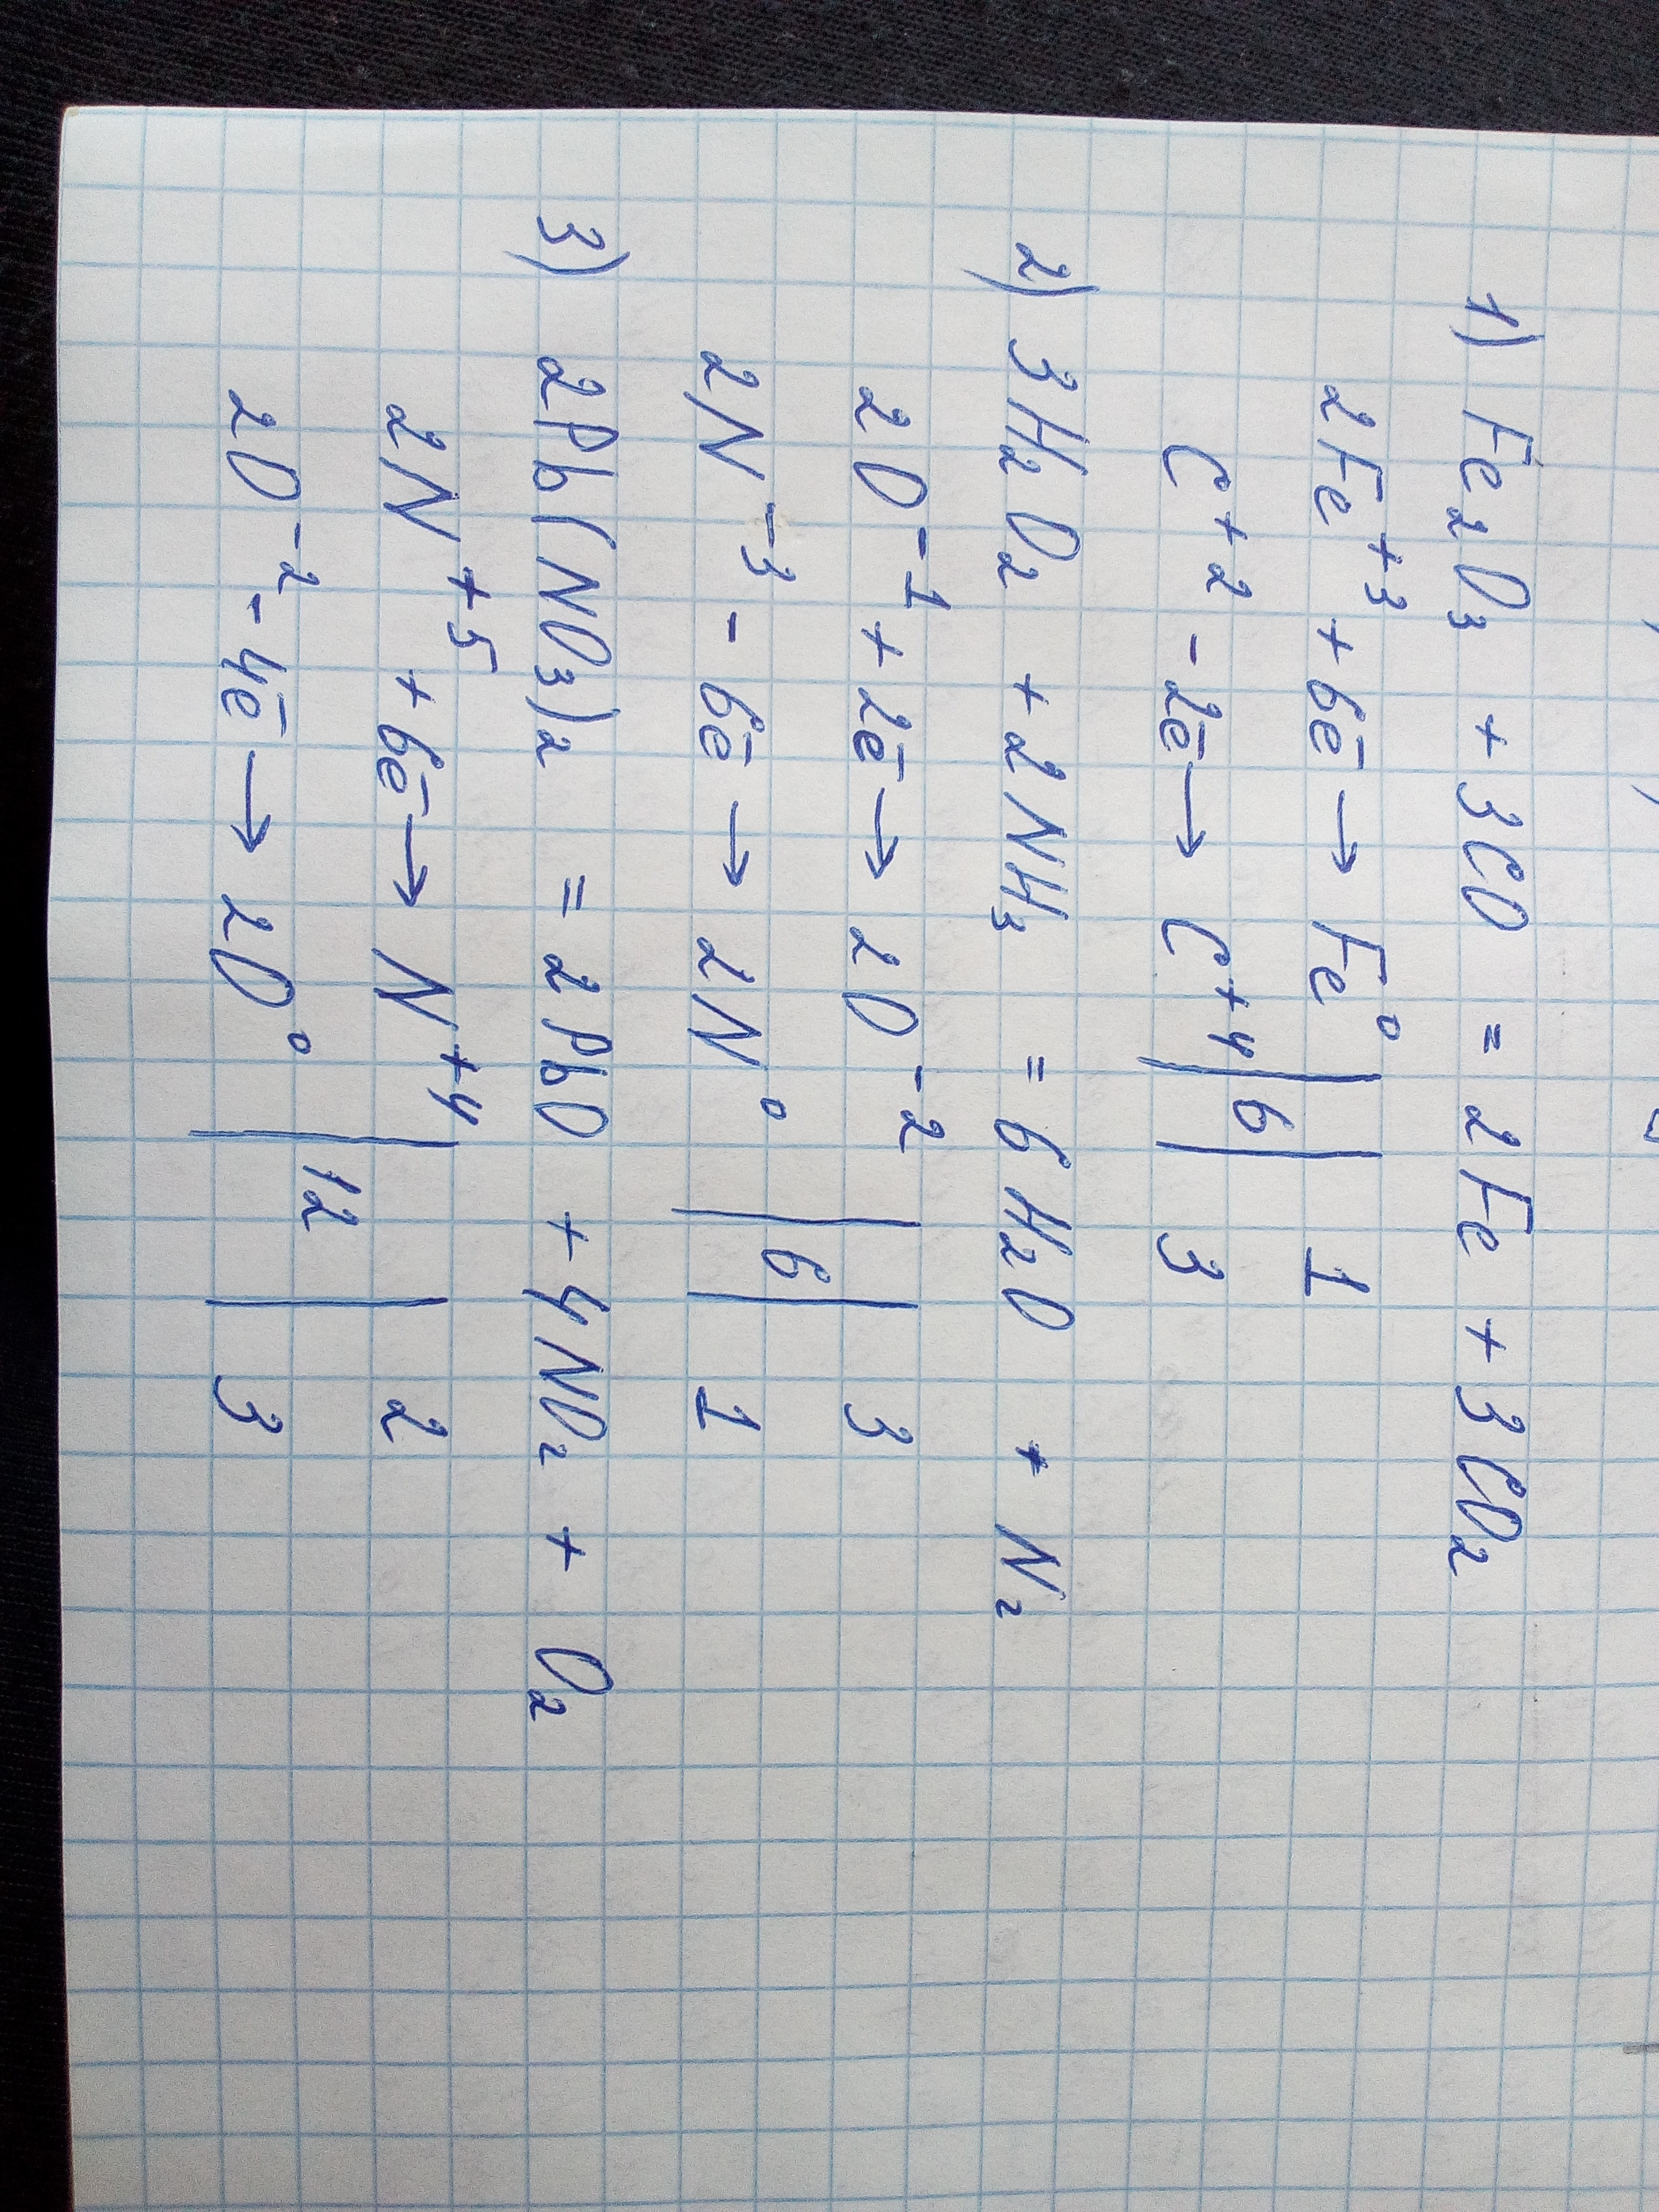 1) Fe₂O₃ + 3CO = 2Fe + 3CO₂
2Fe⁺³ + 6e̅ → Fe⁰ | 6 | 1
C⁺² - 2e̅ → C⁺⁴ | | 3
2) 3H₂O₂ + 2NH₃ = 6H₂O + N₂
2O⁻¹ + 2e̅ → 2O⁻² | 6 | 3
2N⁻³ - 6e̅ → 2N⁰ | | 1
3) 2Pb(NO₃)₂ = 2PbO + 4NO₂ + O₂
2N⁺⁵ + 6e̅ → N⁺⁴ | 12 | 2
2O⁻² - 4e̅ → 2O⁰ | | 3